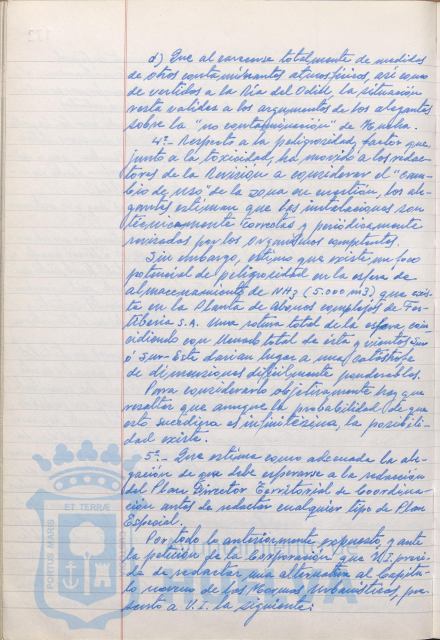 d) Que al carecerse totalmente de medidas
de otros contaminantes atmosféricos, así como
de vertidos a la Ría del Odiel, la situación
resta validez a los argumentos de los alegantes
sobre la "no contaminación" de Huelva.
4º- Respecto a la peligrosidad, factor que,
junto a la toxicidad, ha movido a los redac-
tores de la Revisión a considerar el "cam-
bio de uso" de la zona en cuestión, los ale-
gantes estiman que las instalaciones son
técnicamente correctas y periódicamente
revisadas por los Organismos competentes.
Sin embargo, estimo que existe un foco
potencial de peligrosidad en la esfera de
almacenamiento de NH3 (5.000 m3) que exis-
te en la Planta de Abonos complejos de Fer-
tiberia S.A. Una rotura total de la esfera coin-
cidiendo con llenado total de ésta y vientos Sur
ó Sur-Este darían lugar a una catástrofe
de dimensiones difícilmente ponderables.
Para considerarlo objetivamente hay que
resaltar que aunque la probabilidad de que
esto sucediera es infinitésima, la posibili-
dad existe.
5º- Que estima como adecuada la ale-
gación de que debe esperarse a la redacción
del Plan Director Territorial de Coordina-
ción antes de redactar cualquier tipo de Plan
Especial.
Por todo lo anteriormente expuesto y ante
la petición de la Corporación que V.I. presi-
de de redactar una alternativa al Capítu-
lo noveno de las Normas Urbanísticas, pre-
sento a V.I. la siguiente:
PORTUS MARIS
ET TERRAE